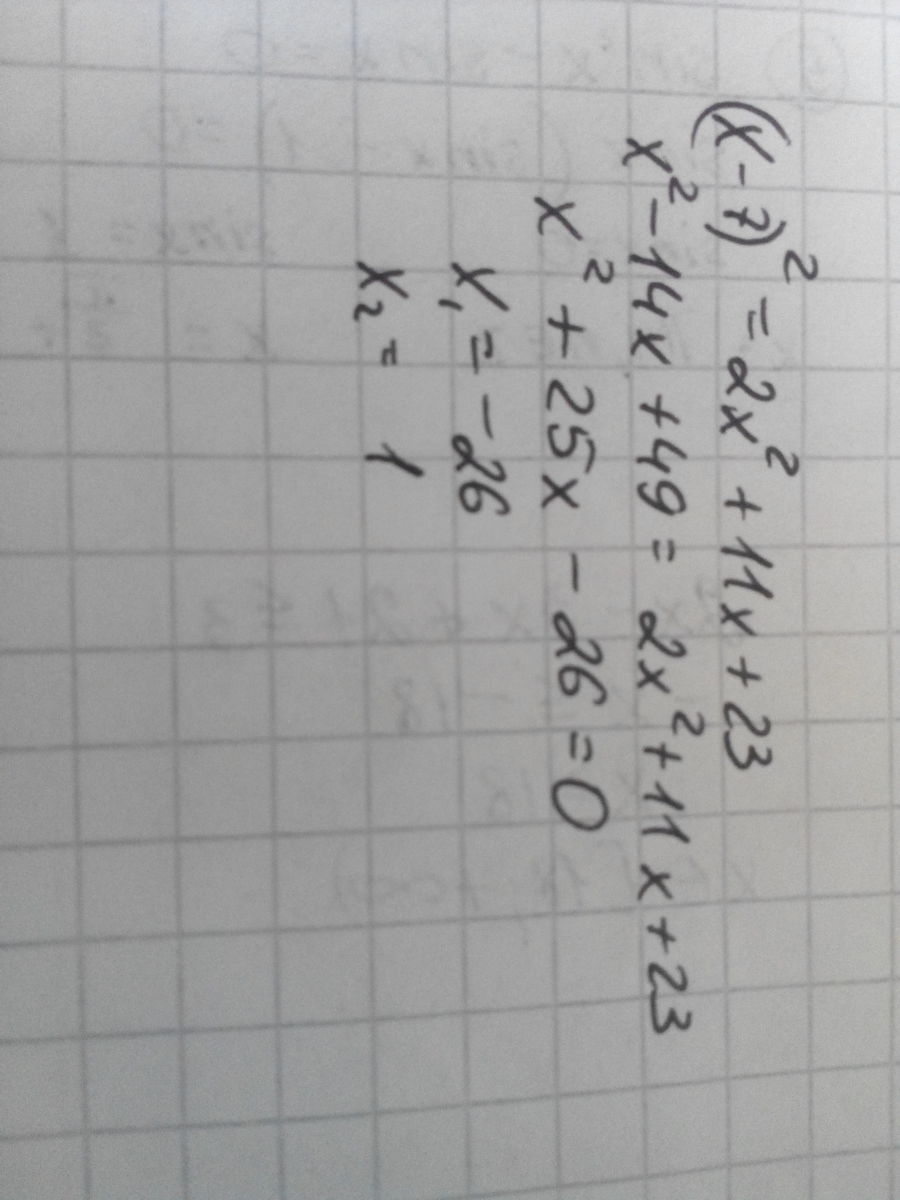 (x-7)² = 2x² + 11x + 23
x² - 14x + 49 = 2x² + 11x + 23
x² + 25x - 26 = 0
x₁ = -26
x₂ = 1